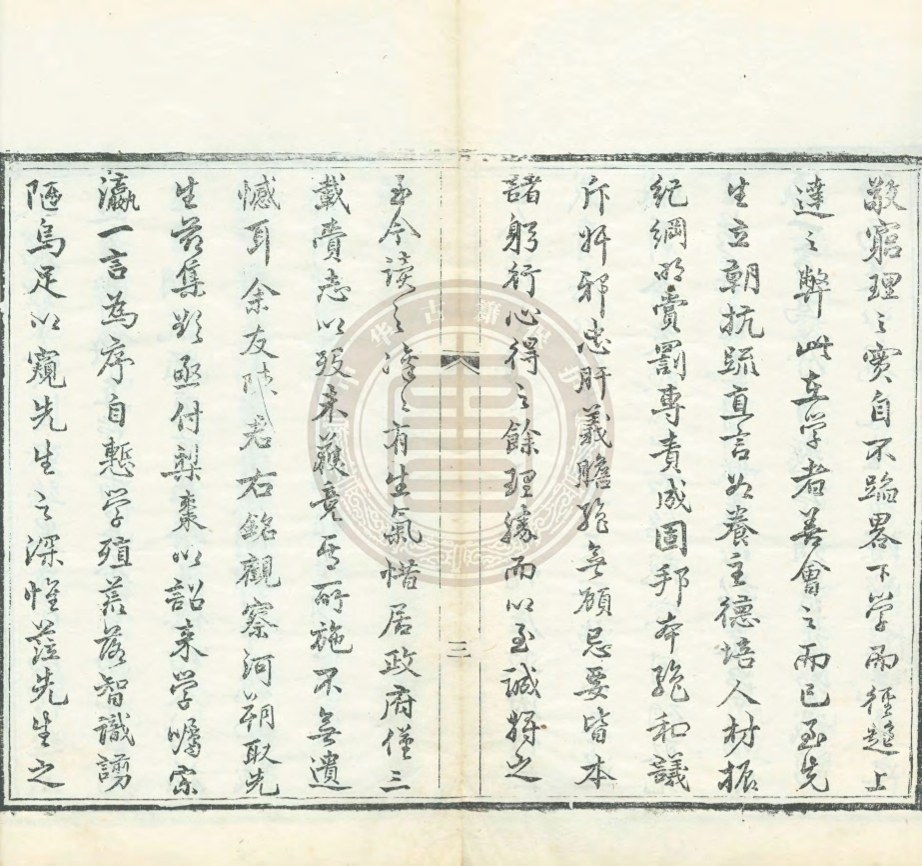 敬窮理之實自不蹈畧下學而徑趨上
達之弊此在學者善會之而已至先
生立朝抗疏直言如養主德培人材振
紀綱明賞罰專責成固邦本絶和議
斥奸邪忠肝義膽絶無顧忌要皆本
諸躬行心得之餘理據而以至誠將之
至今讀之凜之有生氣惜居政府僅三
載賫志以歿未獲竟其所施不無遺
憾耳余友陳君右銘觀察河朔取先
生前集將亟付梨棗以詔來學囑宗
瀛一言為序自慙學殖荒落智識謭
陋烏足以窺先生之深惟蒞先生之
三
中华古籍保护